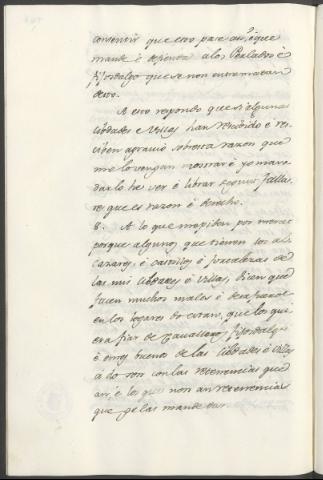 consentir que esto pase assi, é que
mande é defienda a los Perlados é
fijosdalgo que se non entrometan
desto.
A esto respondo que si algunas
cibdades é Villas han rescibido é res-
ciben agravio sobresta razon que
me lo vengan mostrar é yo manda-
darlo he ver é librar segun falla-
re que es razon é derecho.
8. A lo que me piden por merced
porque algunos que tienen los al-
cazares, é castillos é fortalezas de
las mis cibdades é villas, dicen que
facen muchos males é desaguisados
en los logares do estan, que los que-
era fiar de Cavalleros fijosdalgo
é omes buenos de las cibdades é villas
á do son con las tenencias que
an; é los que non an tenencias
que gelas mande dar.